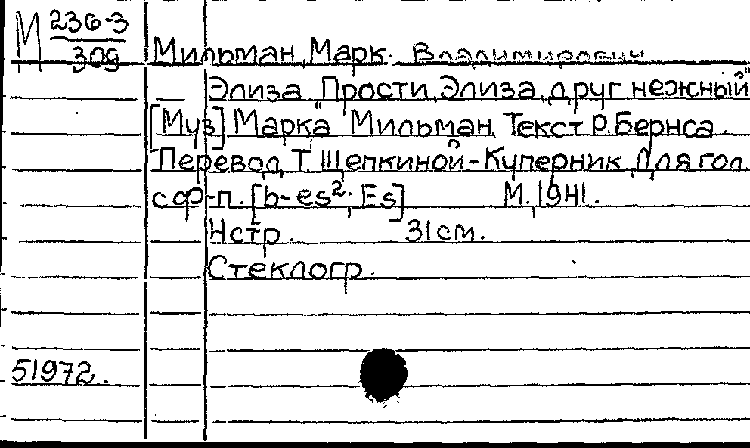 М 236-3
309
Мильман, Марк Владимирович
Элиза. "Прости, Элиза, друг нежный"
[Муз] Марка Мильман. Текст Р. Бернса.
Перевод Т. Щепкиной-Куперник. Для гол.
с ф-п. [b-es². Es] М., 1941.
4 стр. 31 см.
Стеклогр.
51972.